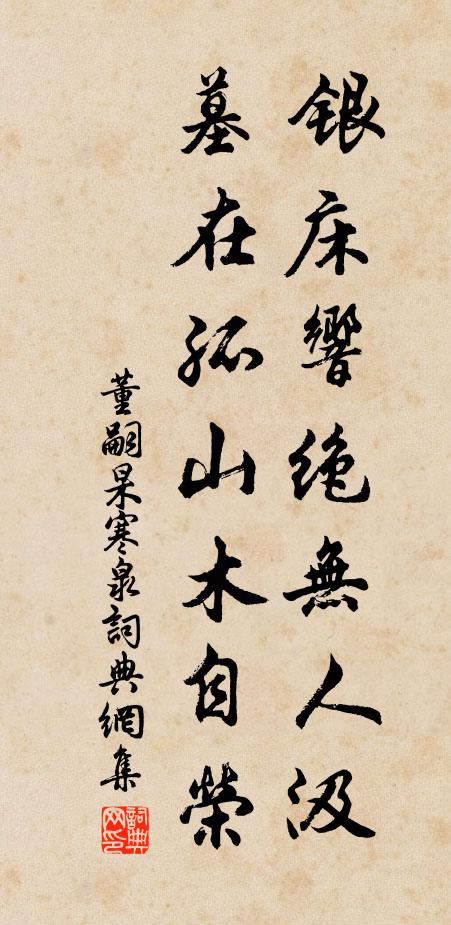 銀床響絶無人汲
墓在孤山木自榮
董嗣杲寒泉詞典網集
詞典網印